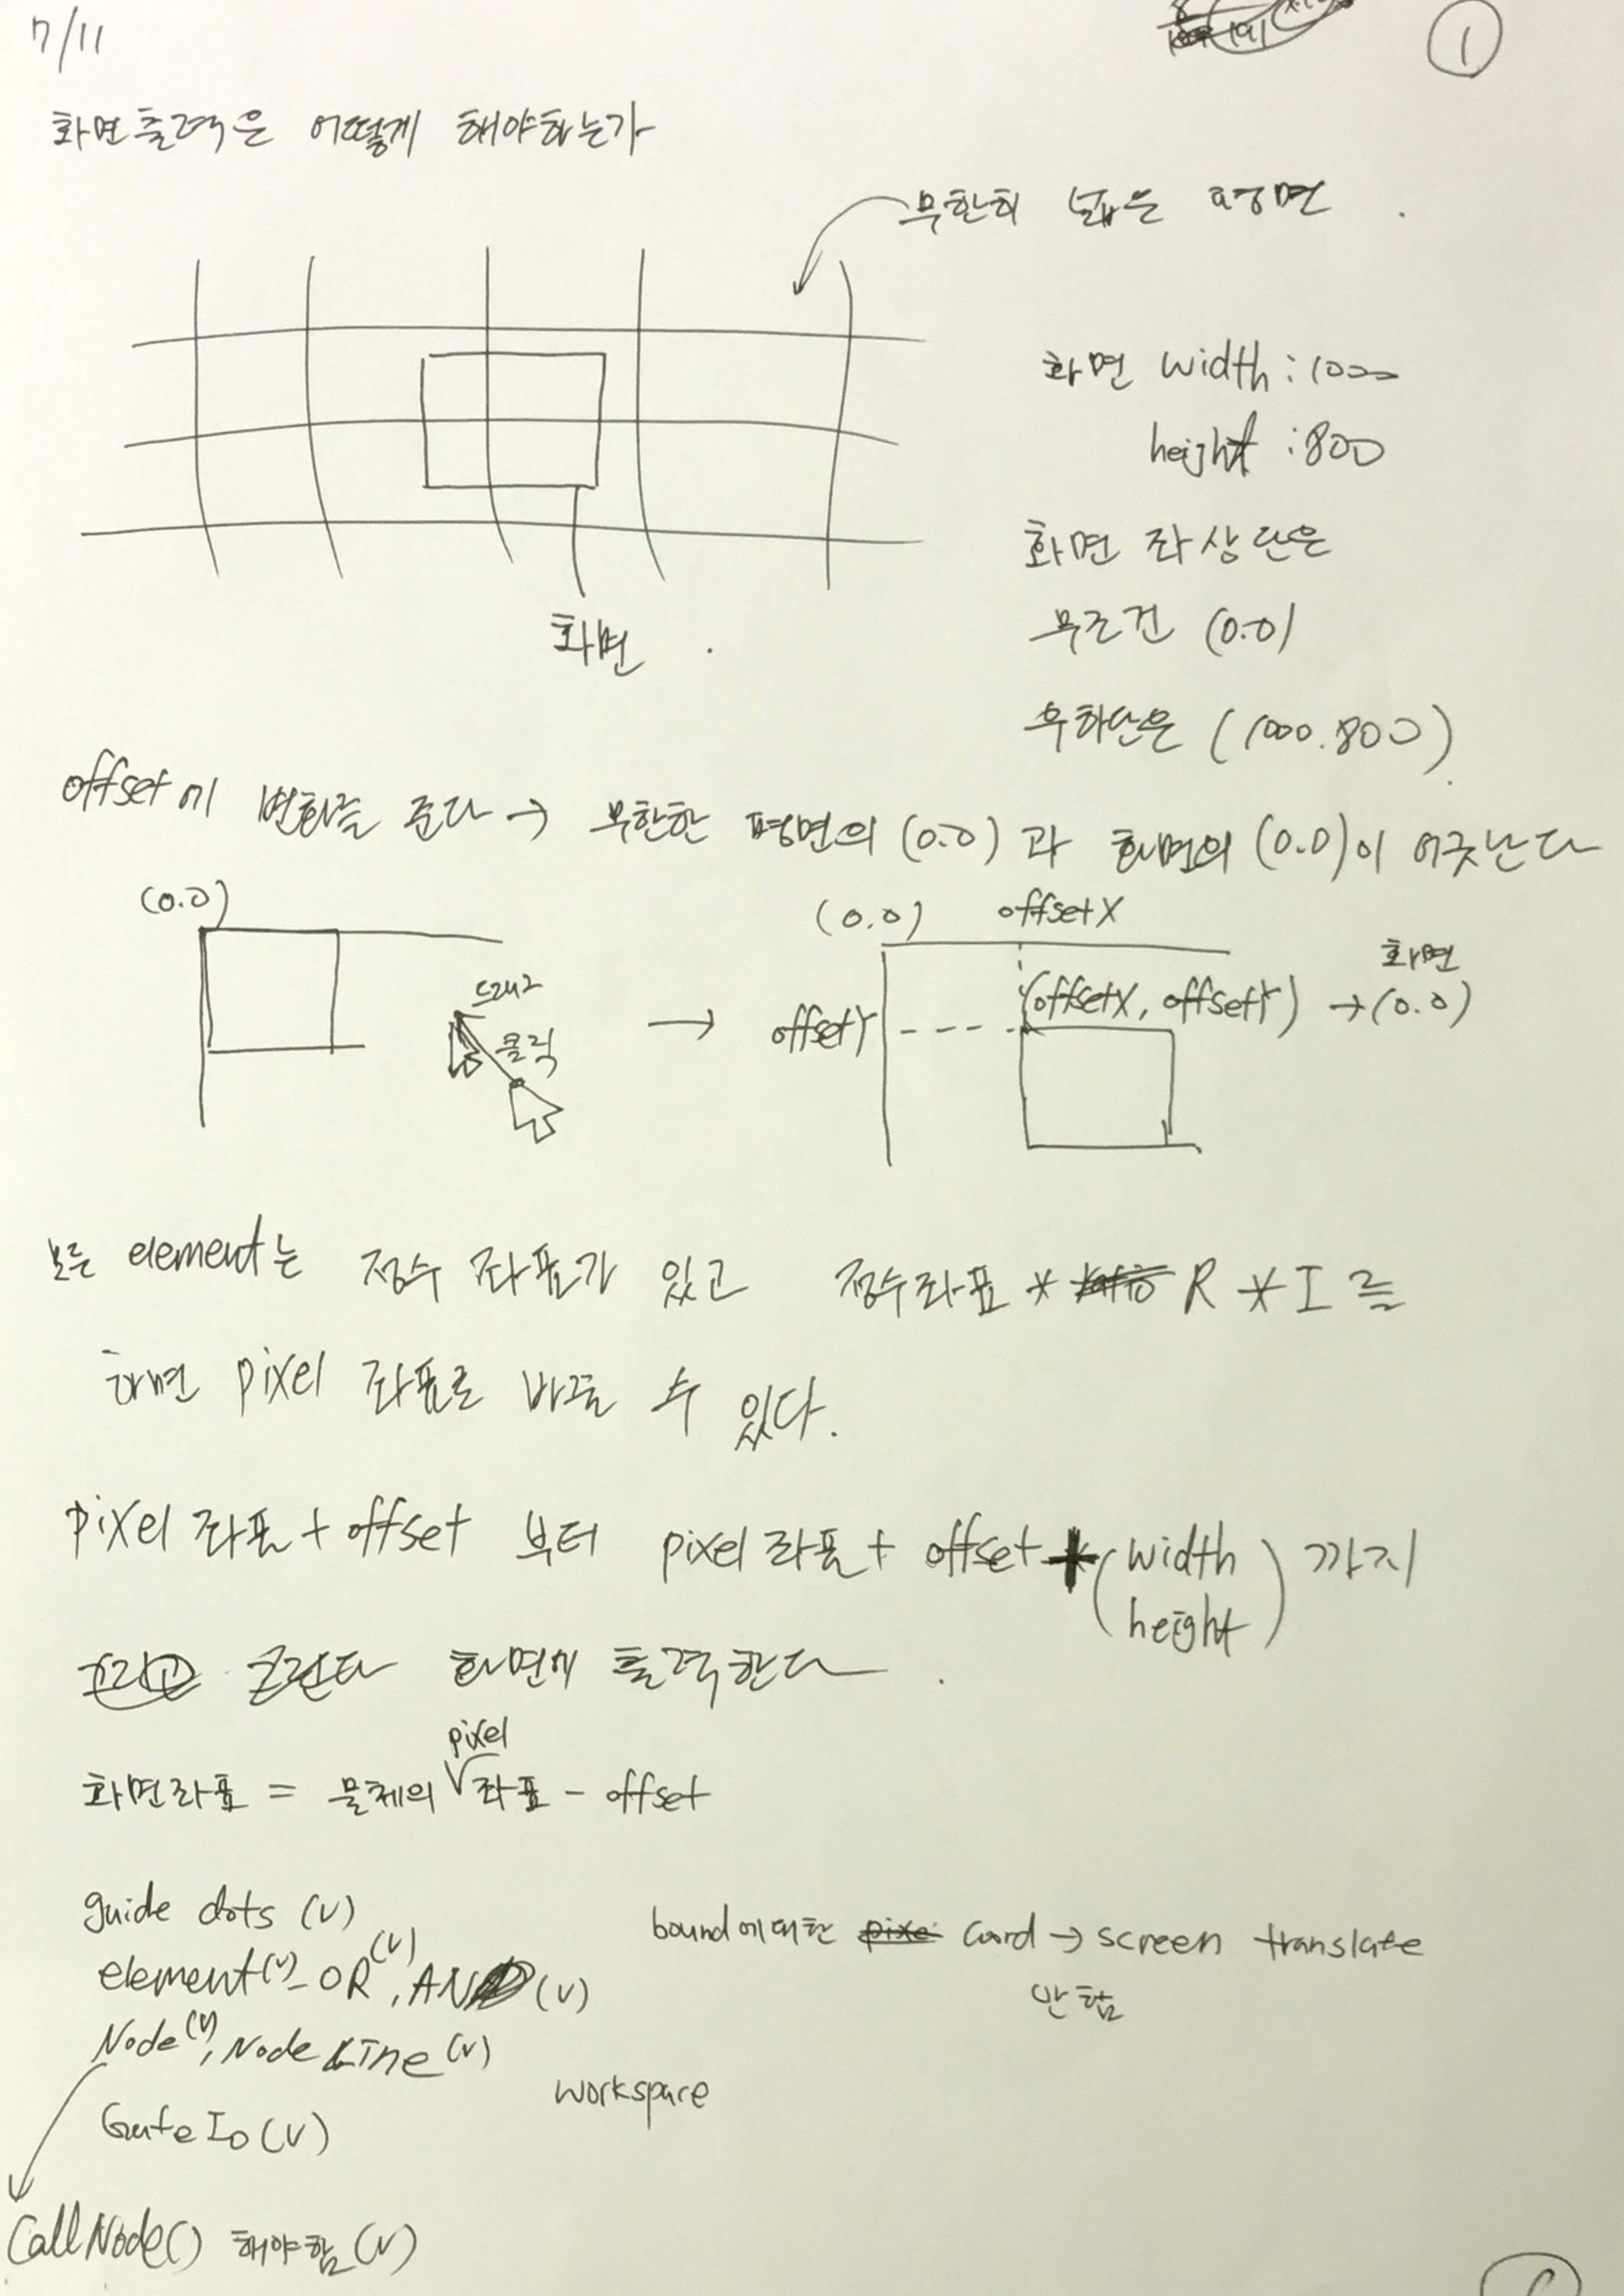 7/11
①
화면출력은 어떻게 해야하는가
무한히 넓은 평면.
화면 width : 1000
height : 800
화면 좌상단은
무조건 (0.0)
우하단은 (1000.800).
화면.
offset에 변화를 준다 → 무한한 평면의 (0.0)과 화면의 (0.0)이 어긋난다
(0.0)
드래그
클릭
→
(0.0) offsetX
offsetY
(offsetX, offsetY) → (0.0)
화면
모든 element는 정수 좌표가 있고 정수좌표 * R * I 를
하면 pixel 좌표로 바꿀 수 있다.
pixel 좌표 + offset 부터 pixel 좌표 + offset + (width height) 까지
그리고 그린다 화면에 출력한다.
화면좌표 = 물체의 pixel 좌표 - offset
guide dots (v)
element(v) - OR(v), AND(v)
Node(v), Node Line(v)
GateIo(v)
CallNode() 해야함(v)
bound에 대한 pixe coord → screen translate
안함
workspace